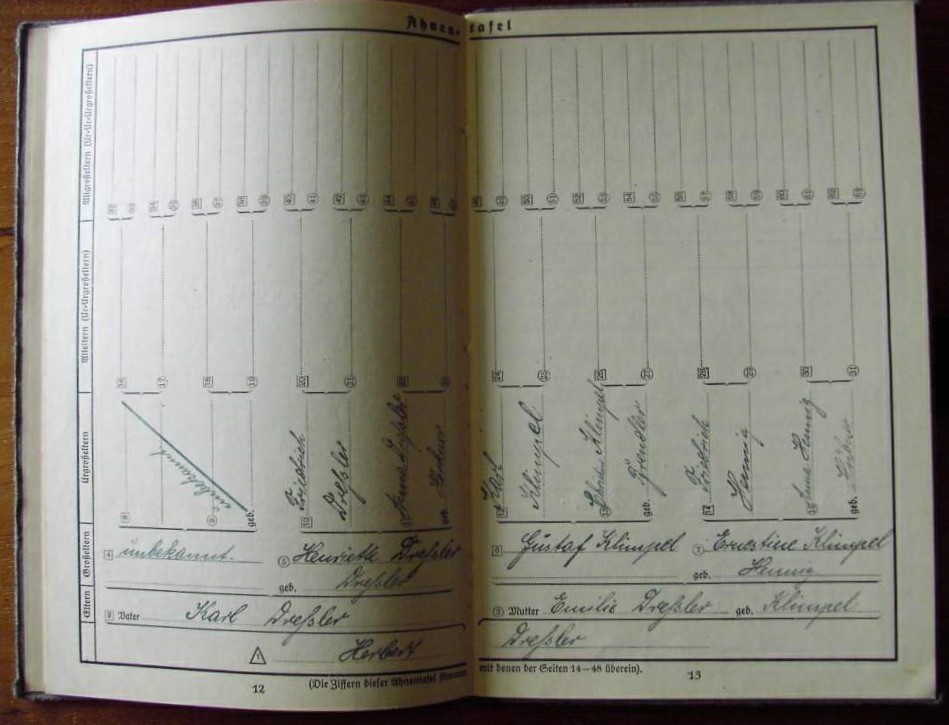 Ahnentafel
Altgroßeltern (Ur-Ur-Urgroßeltern)
Alteltern (Ur-Urgroßeltern)
Urgroßeltern
Großeltern
Eltern
16 17 18 19 20 21 22 23 24 25 26 27 28 29 30 31
8 unbekannt
9 unbekannt
geb.
10 Friedrich
Dreßler
11 Anna
geb.
12 Karl
Klimpel
13 Klimpel
geb. Brendler
14 Friedrich
Hennig
15 Anna Hennig
geb.
4 unbekannt.
5 Henriette Dreßler
geb. Dreßler
6 Gustaf Klimpel
7 Ernestine Klimpel
geb. Hennig
2 Vater Karl Dreßler
3 Mutter Emilie Dreßler geb. Klimpel
1 Herbert Dreßler
(Die Ziffern dieser Ahnentafel stimmen mit denen der Seiten 14—48 überein).
12
13